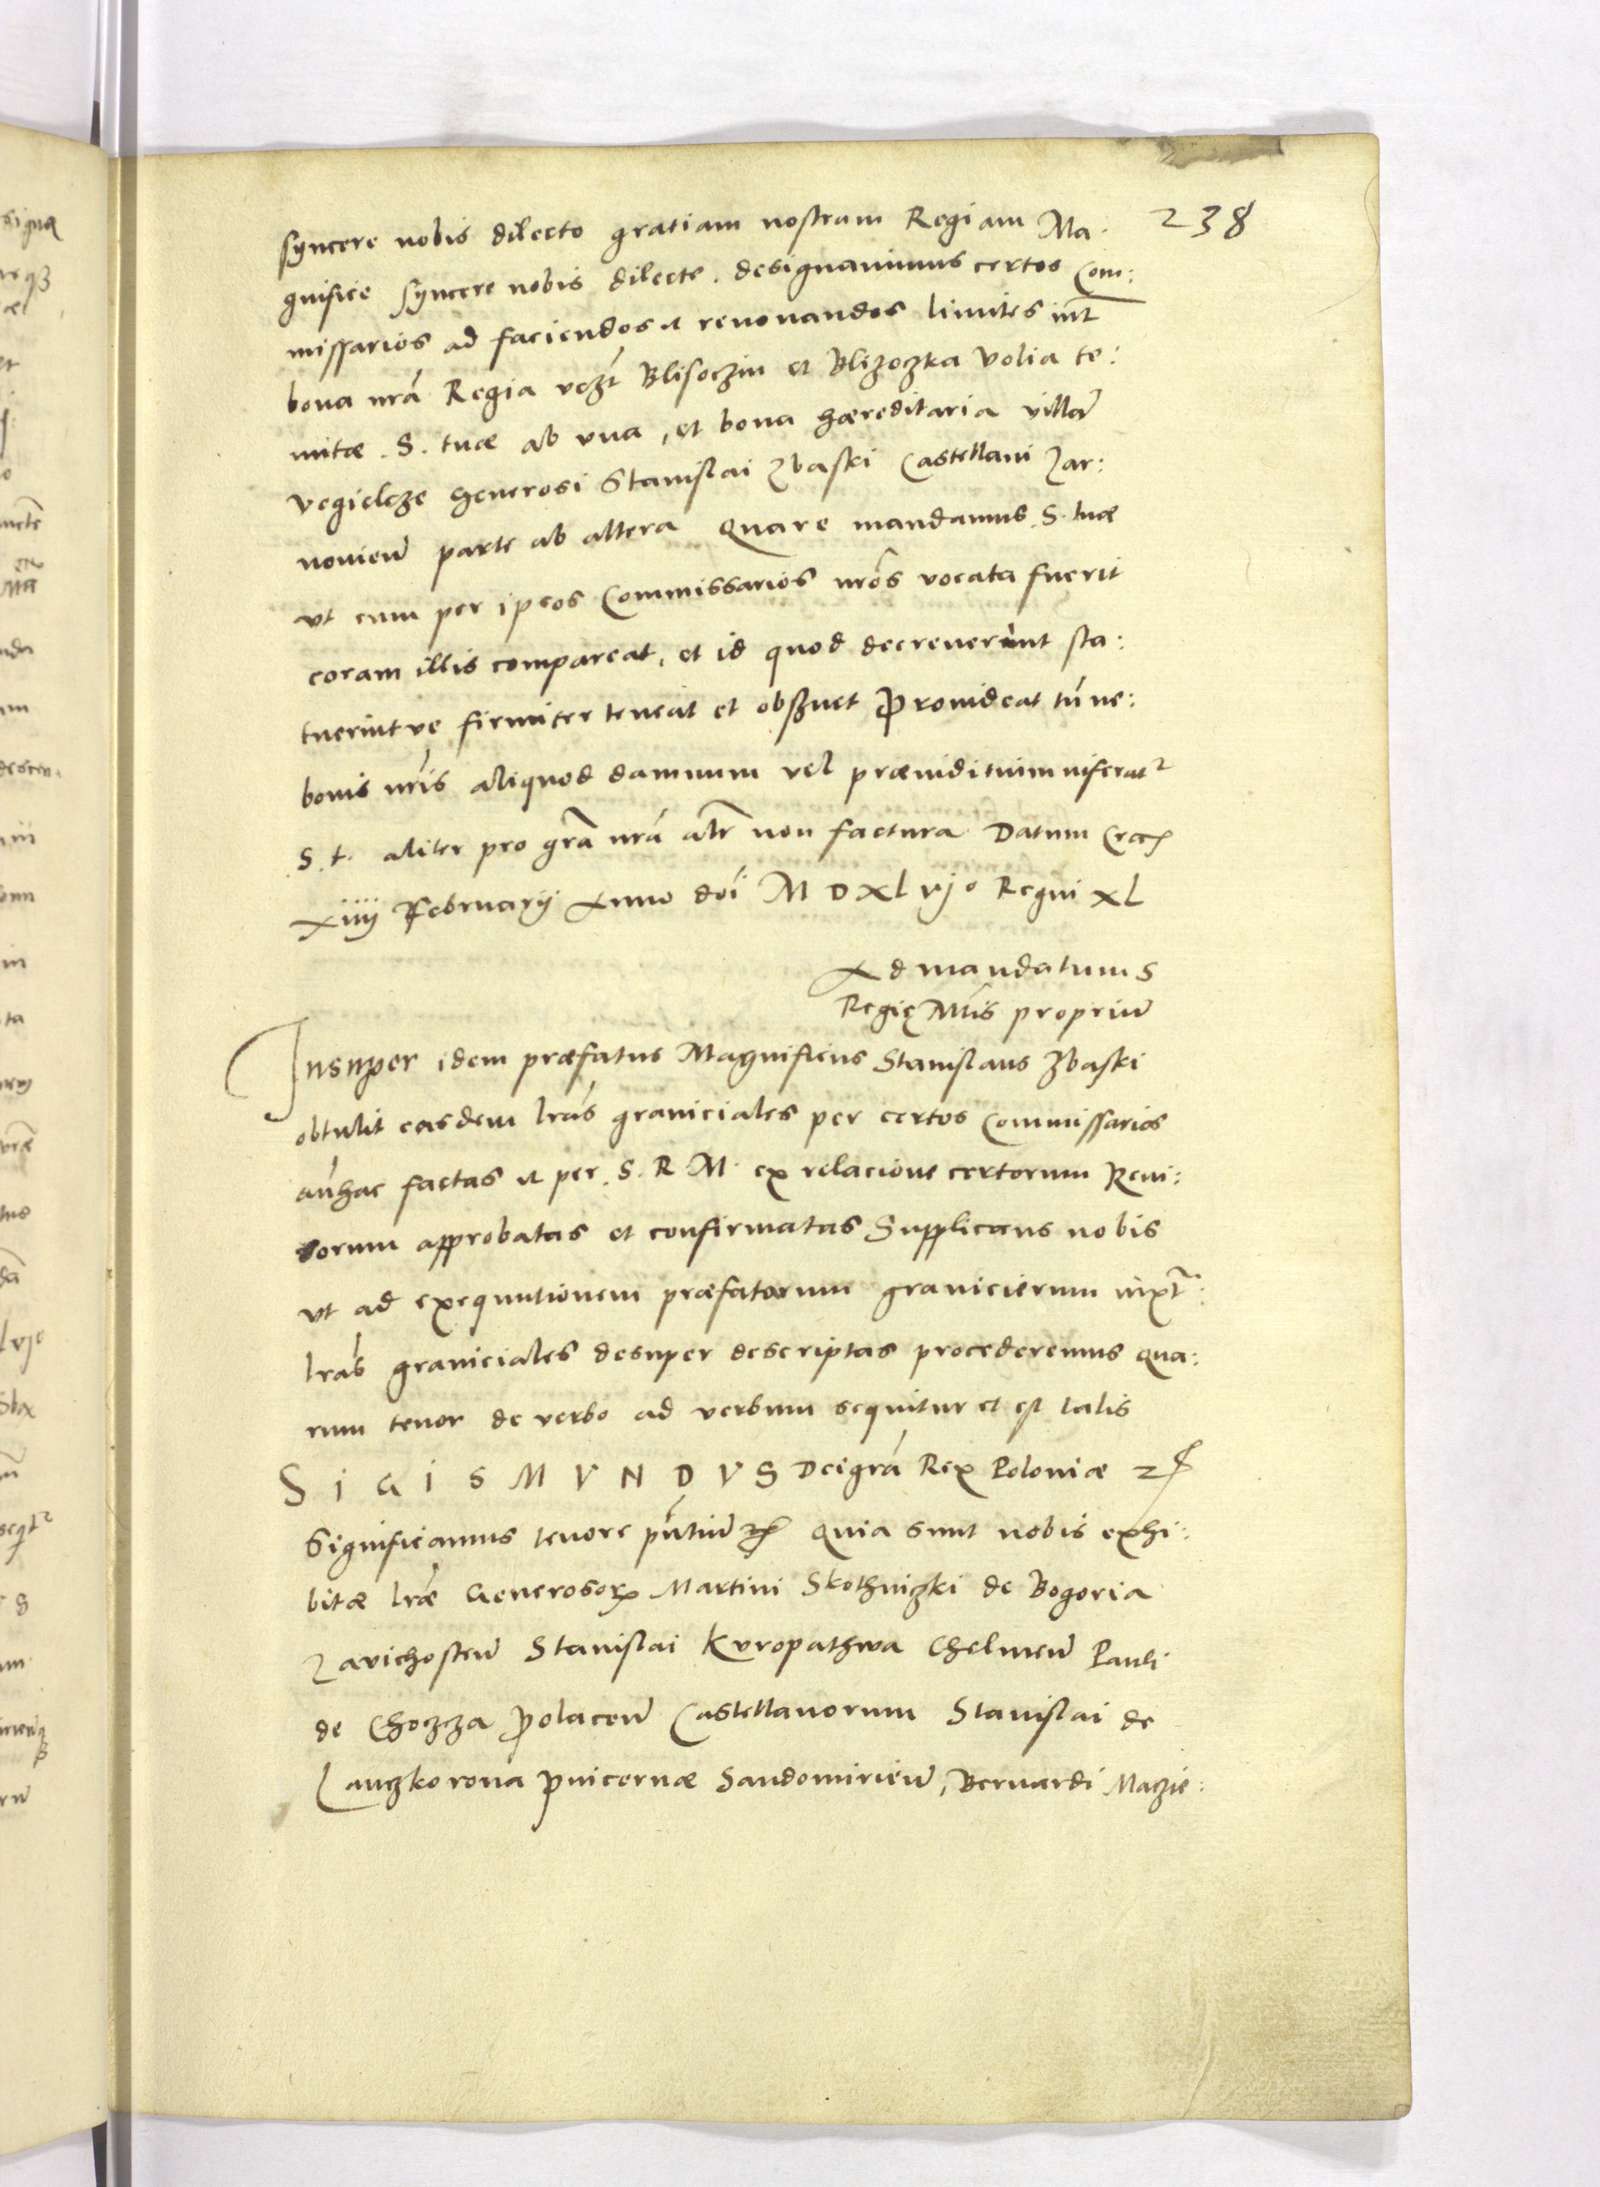 238
syncere nobis dilecto gratiam nostram Regiam Ma.
gnifice syncere nobis dilecte. designavimus certos Com:
missarios ad faciendos et renovandos limites int
bona nrã Regia vczt Blisoczin et Blizoczka Volia te:
nutæ .S. tuæ ab vna, et bona hæreditaria villã
Vegielcze Generosi Stanislai Zbaski Castellani Zar:
novieñ parte ab altera Quare mandamus .S. tuæ
vt cum per ipsos Commissarios nrõs vocata fuerit
coram illis compareat, et id quod decreverint sta:
tuerint ve firmiter teneat et obßuet Provideat tñ ne:
bonis nrĩs aliquod damnum vel præiuditium inferat
S. t. aliter pro grã nrã alr non factura Datum Crac
xiiij Februarij Anno doĩ M D xl vjº Regni XL
Ad mandatum S
Regię Mtis propriũ
Insuper idem præfatus Magnificus Stanislaus Zbaski
obtulit easdem lrãs graniciales per certos Commissarios
añhac factas et per .S. R M. ex relacione certorum Revi:
sorum approbatas et confirmatas Supplicans nobis
vt ad exequutionem præfatorum granicierum iuxt:
lrãs graniciales desuper descriptas procederemus qua:
rum tenor de verbo ad verbum sequitur et est talis
SIGISMVNDVS Dei grã Rex Poloniæ
Significamus tenore pñtiũ quia sunt nobis exhi:
bitæ lræ Generosor Martini Skothniczki de Bogoria
Zavichosteñ Stanislai Kvropathwa Chelmeñ Pauli
de Choczza Polaceñ Castellanorum Stanislai de
Lanczkorona Pincernæ Sandomirieñ, Bernardi Maczie: